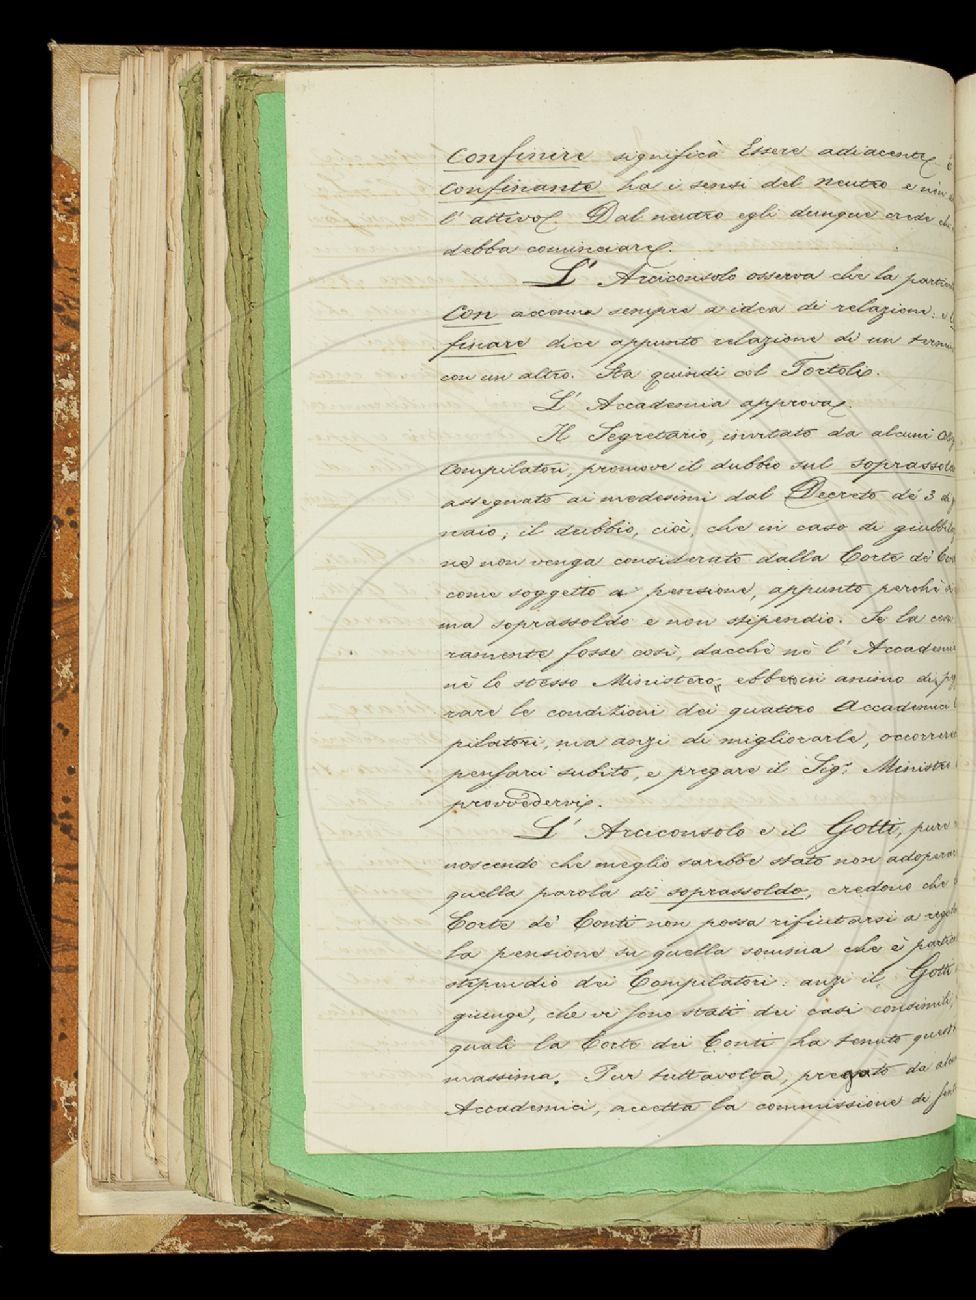 Confinire significà Essere adiacente, e
Confinante ha i sensi del neutro e non
l'attivo. Dal neutro egli dunque crede che
debba cominciare.
L'Arciconsolo osserva che la partic
Con accenna sempre a idea di relazione: e
finare dice appunto relazione di un termin
con un altro. Sta quindi col Tortoli.
L'Accademia approva.
Il Segretario, invitato da alcuni
Compilatori, promove il dubbio sul soprassol
assegnato ai medesimi dal Decreto de' 3 di g
naio; il dubbio, cioè, che in caso di giubbila
ne non venga considerato dalla Corte de' Con
come soggetto a pensione, appunto perchè
ma soprassoldo e non stipendio. Se la cosa
ramente fosse così, dacchè nè l'Accademia
nè lo stesso Ministero, ebbe in animo di peg
rare le condizioni dei quattro Accademici
pilatori, ma anzi di migliorarle, occorrere
pensarci subito, e pregare il Sig.r Ministro
provvedervi.
L'Arciconsolo e il Gotti, pure
noscendo che meglio sarebbe stato non adoperar
quella parola di soprassoldo, credono che
Corte de' Conti non possa rifiutarsi a rego
la pensione su quella somma che è parte
stipendio dei Compilatori: anzi il Gotti
giunge, che vi sono stati dei casi consimili,
quali la Corte dei Conti ha tenuto questa
massima. Pur tuttavolta, pregato da alcu
Accademici, accetta la commissione di sen